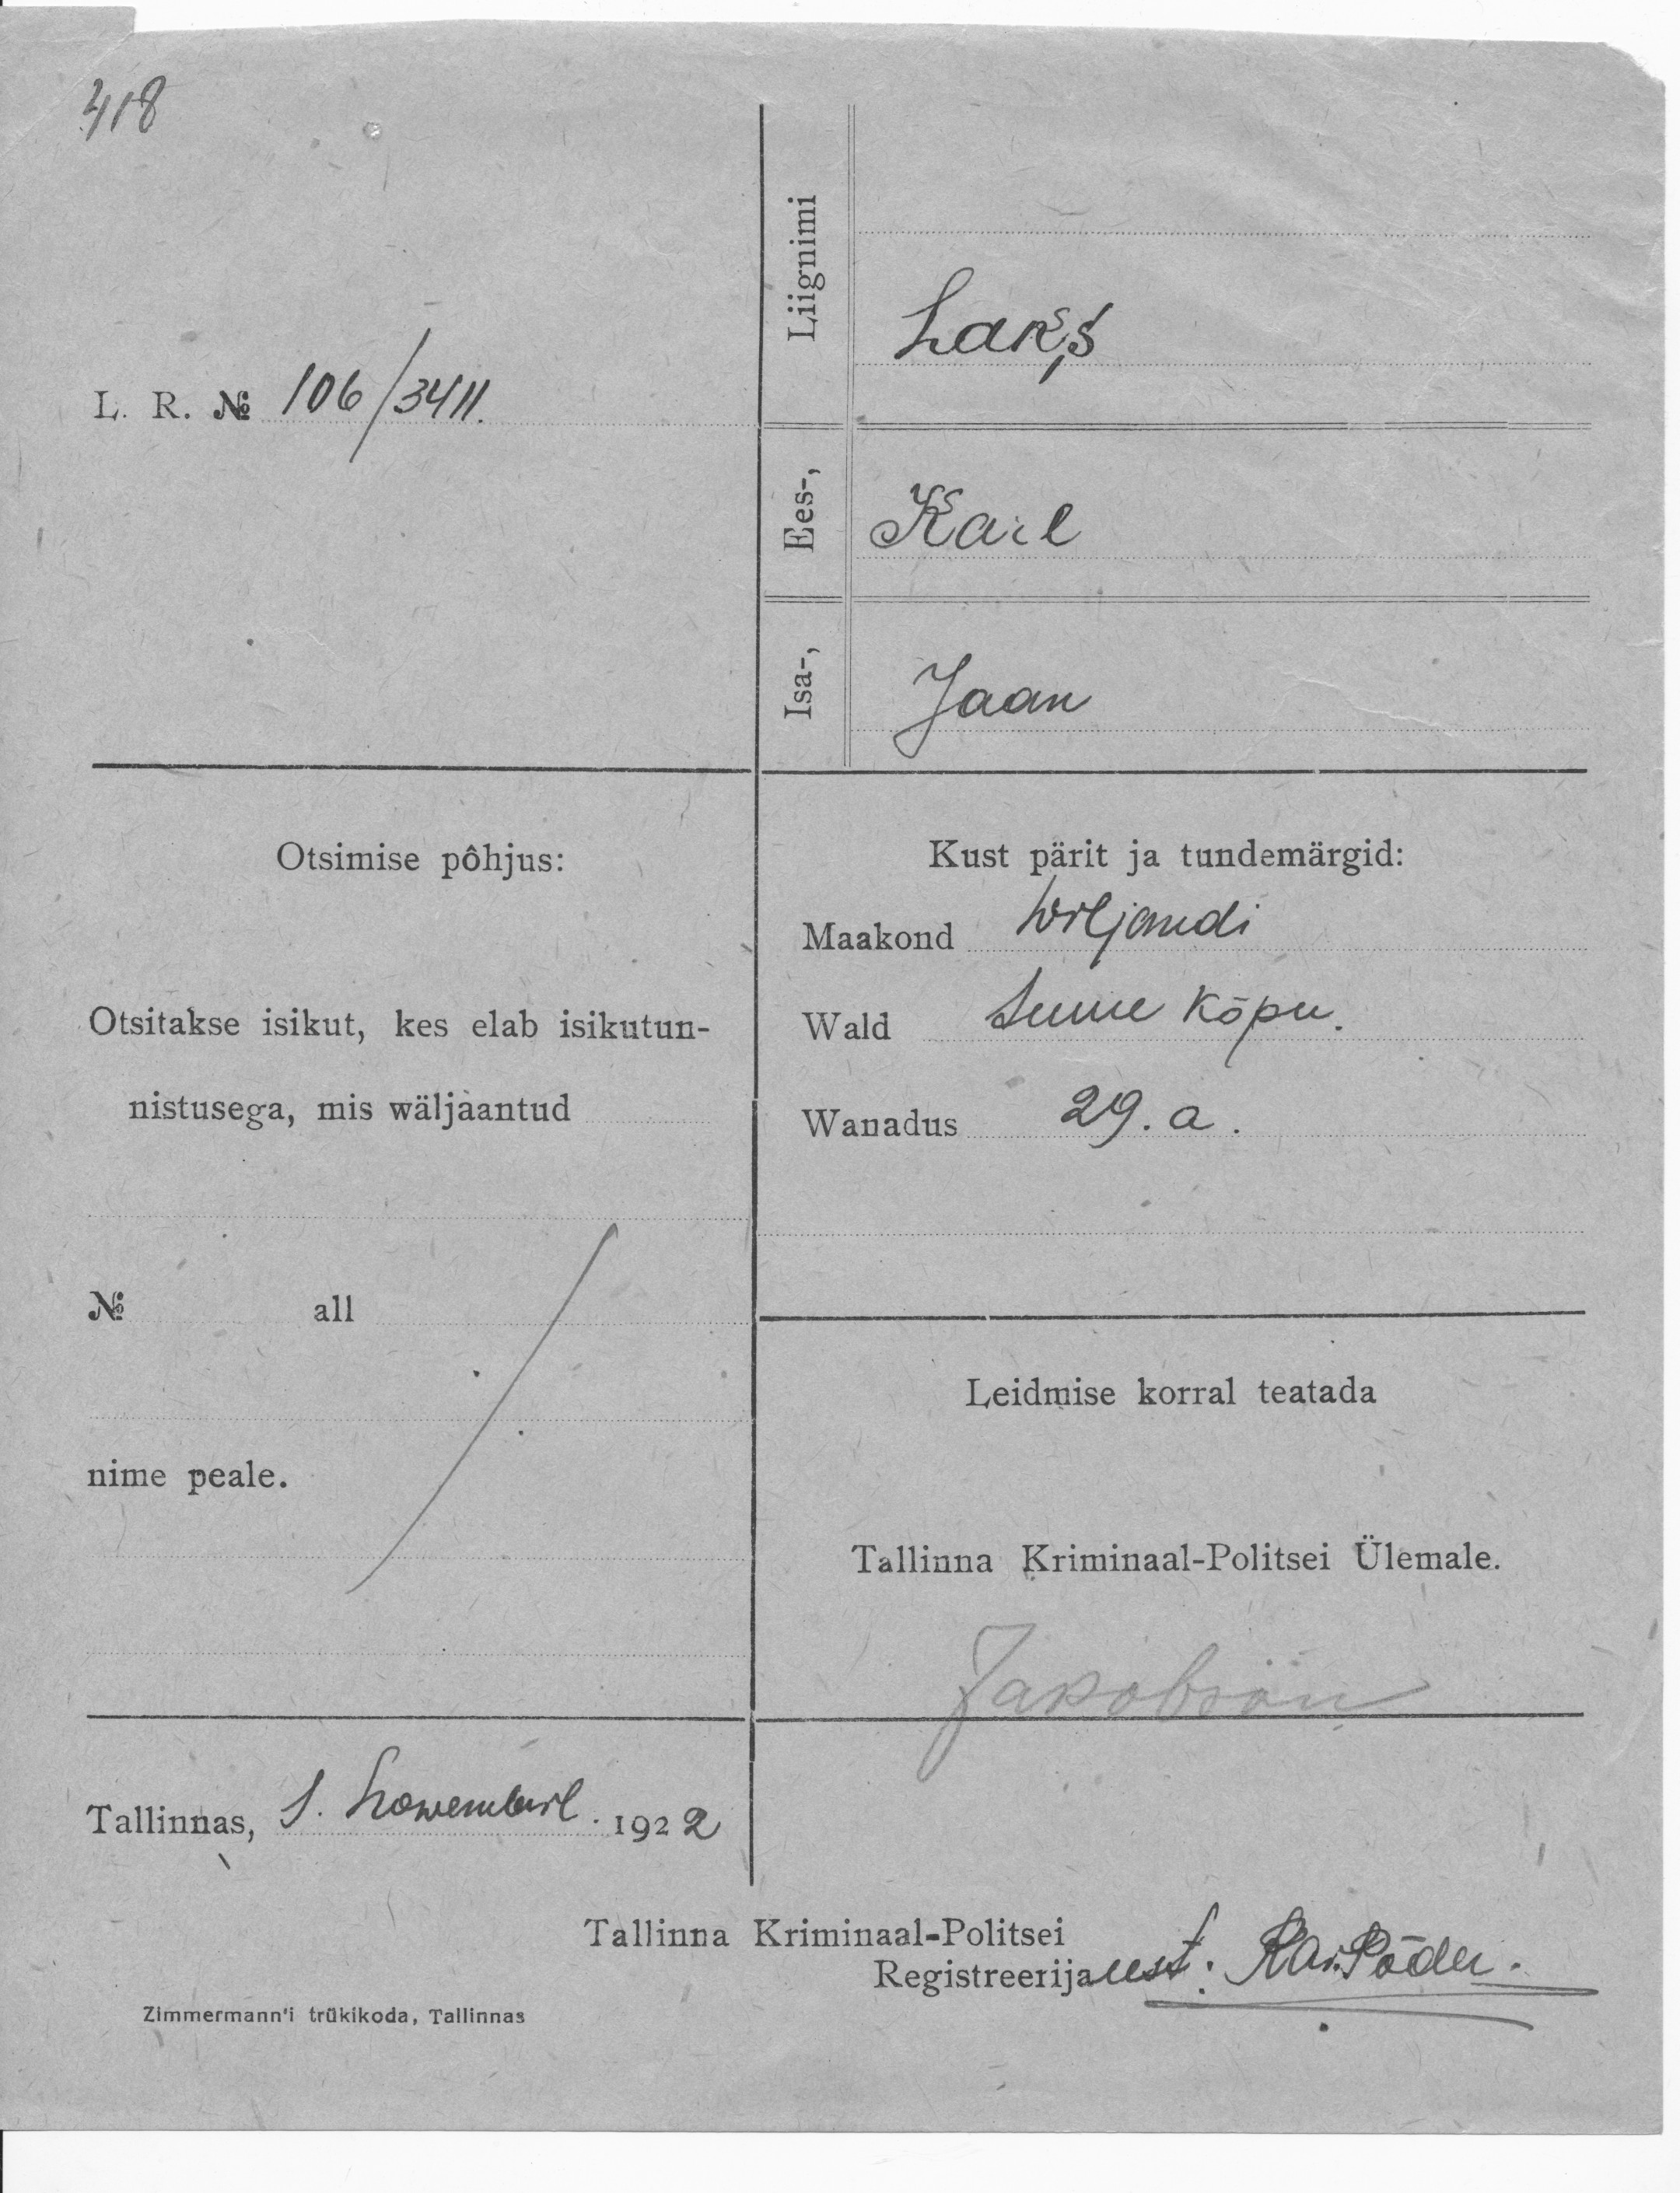 418
L. R. № 106/3411.
Liignimi
Laks
Ees-,
Karl
Isa-,
Jaan
Otsimise põhjus:
Otsitakse isikut, kes elab isikutun-
nistusega, mis wäljaantud
№ all
nime peale.
Kust pärit ja tundemärgid:
Maakond Wiljandi
Wald Suure Kõpu.
Wanadus 29. a.
Leidmise korral teatada
Tallinna Kriminaal-Politsei Ülemale.
Jakobson
Tallinnas, 1. Nowembril. 1922
Tallinna Kriminaal-Politsei
Registreerija Põder.
Zimmermann'i trükikoda, Tallinnas